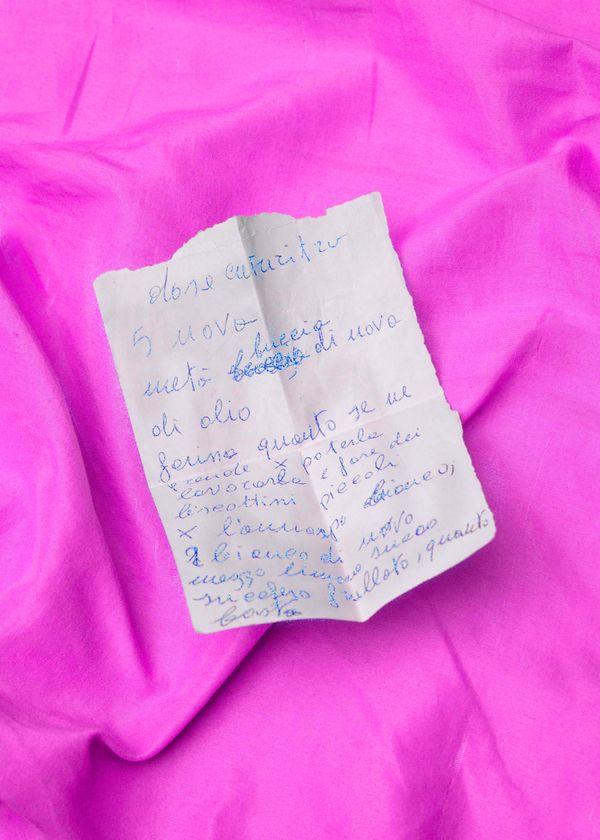 dose
5 uova
metà buccia di uovo
di olio
farina quanto se ne
prende x poterla
lavorarla e fare dei
biscottini piccoli
x l'annaspo bianco,
2 bianco di uovo
mezzo limone succo
zucchero a vellato, quanto
basta